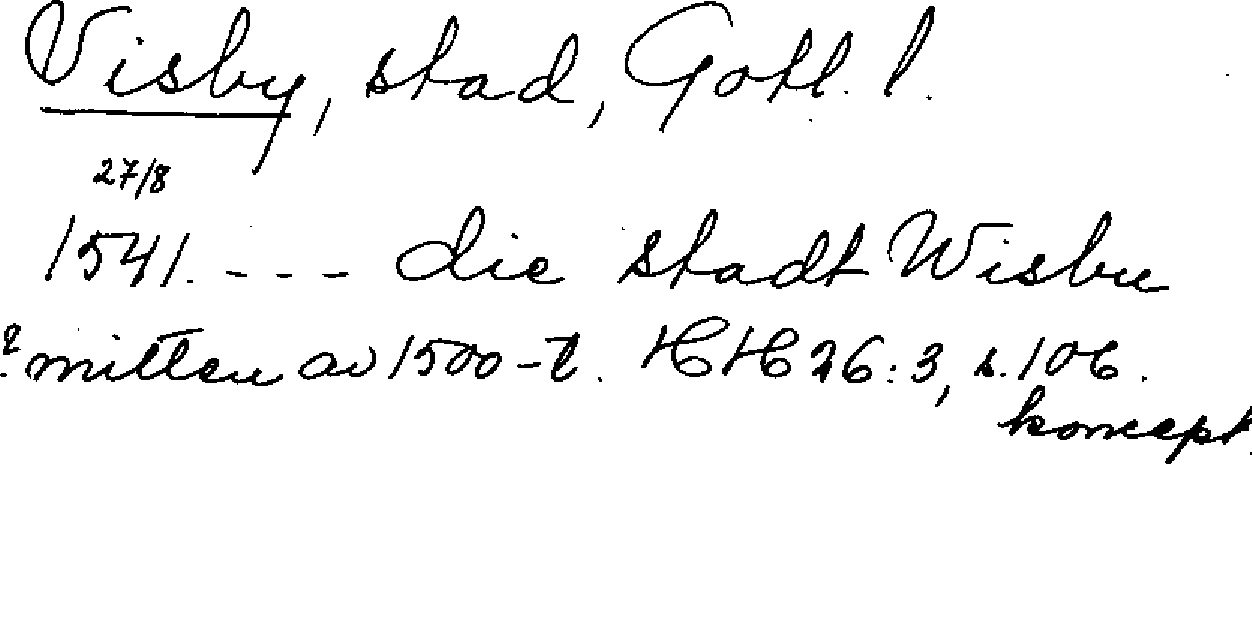 Visby, stad, Gotl. l.
27/8
1541. --- die stadt Wisbu
? mitten av 1500-t. HH 26:3, s. 106.
koncept.